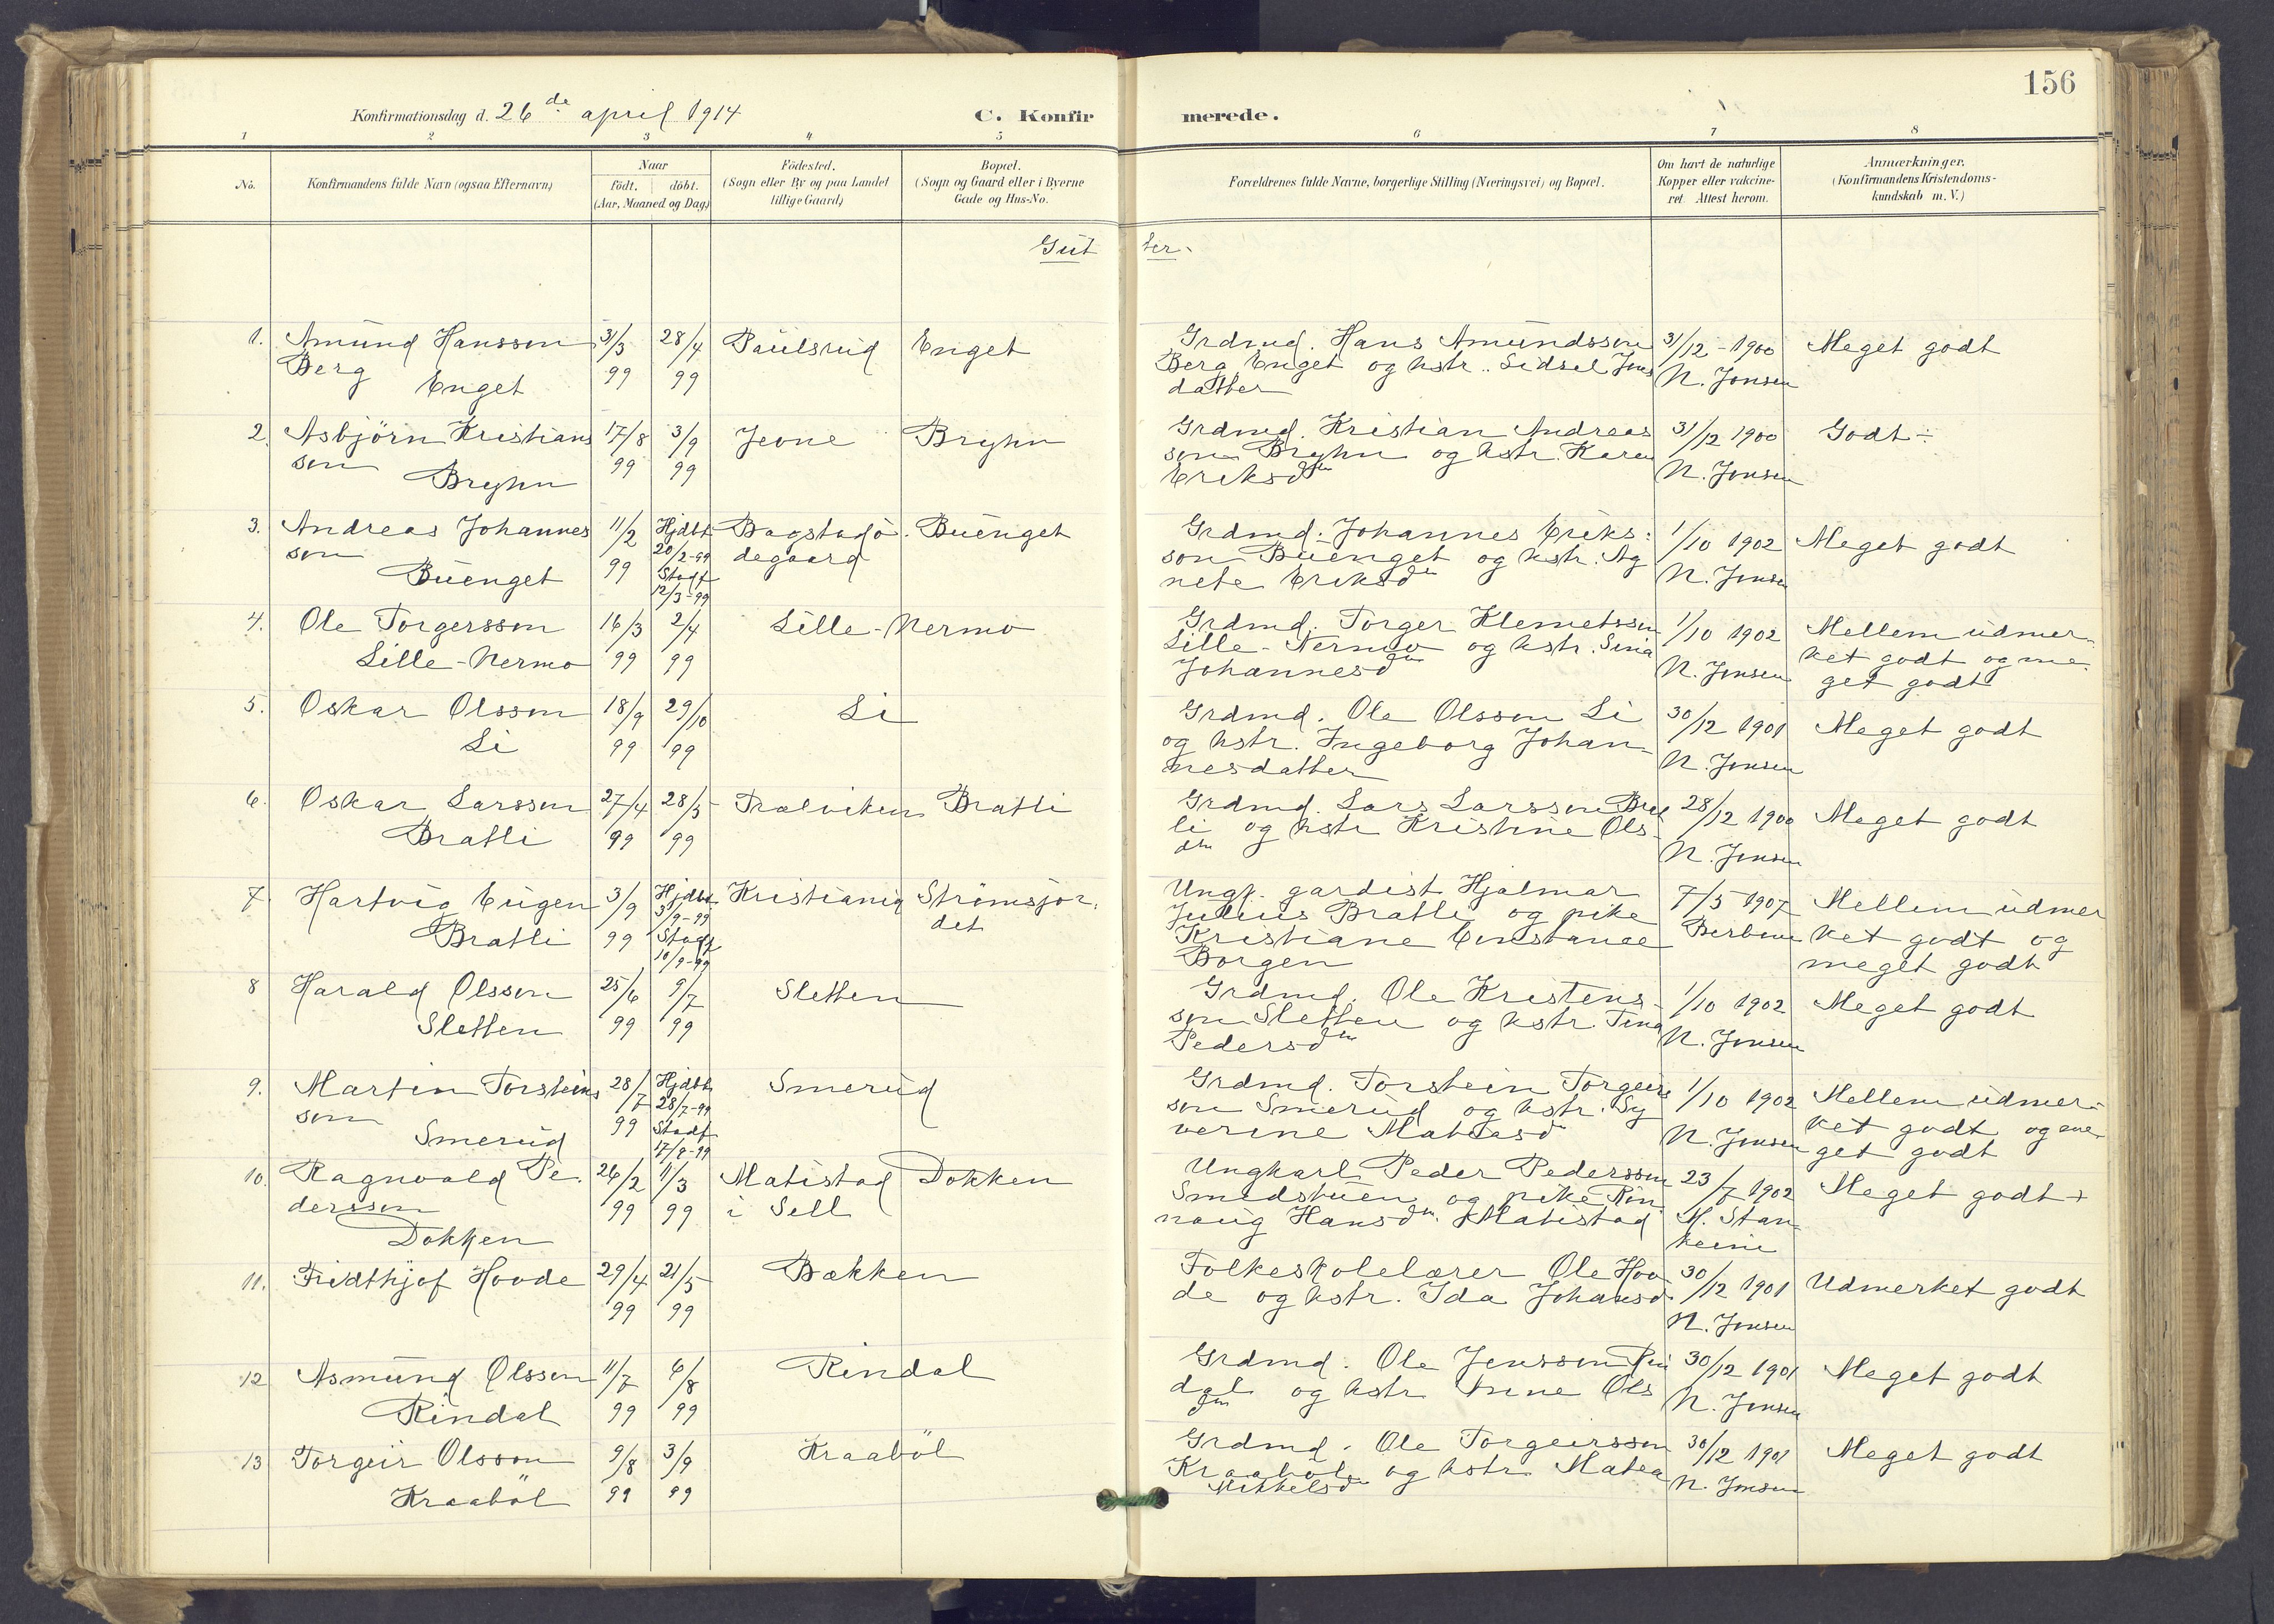 156
Konfirmationsdag d. 26de april 1914
C. Konfirmerede.
1 2 3 4 5 6 7 8
No.
Konfirmandens fulde Navn (ogsaa Efternavn)
Naar
födt. döbt.
(Aar, Maaned og Dag)
Födested.
(Sogn eller By og paa Landet
tillige Gaard)
Bopæl.
(Sogn og Gaard eller i Byerne
Gade og Hus-No.
Forældrenes fulde Navne, borgerlige Stilling (Næringsvei) og Bopæl.
Om havt de naturlige
Kopper eller vakcine-
ret Attest herom.
Anmærkninger.
(Konfirmandens Kristendoms-
kundskab m. V.)
Gutter.
1. Amund Hansson
Berg
Enget
31/3 99
28/4 99
Paulsrud
Enget
Grdmd. Hans Amundsson
Berg Enget og hstr. Sidsel Jens
datter
31/12 - 1900
N. Jonsen
Meget godt
2. Asbjörn Kristians
son
Bryhn
17/8 99
3/9 99
Jevne
Bryhn
Grdmd. Kristian Andreas
son Bryhn og hstr. Karen
Eriksdtr
31/12 1900
N. Jonsen
Godt ÷
3. Andreas Johannes
son
Buenget
11/2 99
Hjdbt
20/2-99
Stadf
12/3-99
Bagstadö
degaard
Buenget
Grdmd. Johannes Eriks
son Buenget og hstr. Ag
nete Eriksdtr
1/10 1902
N. Jonsen
Meget godt
4. Ole Torgersson
Lille-Nermo
16/3 99
2/4 99
Lille-Nermo
Grdmd. Torger Klemetsson
Lille-Nermo og hstr. Sina
Johannesdtr
1/10 1902
N. Jonsen
Mellem udmer-
ket godt og me-
get godt
5. Oskar Olsson
Li
18/9 99
29/10 99
Li
Grdmd. Ole Olsson Li
og hstr. Ingeborg Johan-
nesdatter
30/12 1901
N. Jonsen
Meget godt
6. Oskar Larsson
Bratli
27/4 99
28/5 99
Trælviken
Bratli
Grdmd. Lars Larsson Brat
li og hstr Kristine Ols-
dtr
28/12 1900
N. Jonsen
Meget godt
7. Hartvig Eugen
Bratli
3/9 99
Hjdbt
3/9-99
Stadf
10/9-99
Kristiania
Strömsjor-
det
Ungk. gardist Hjalmar
Julius Bratli og pike
Kristiane Constance
Borgen
7/5 1907
Mellem udmer
ket godt og
meget godt
8 Harald Olsson
Sletten
25/6 99
9/7 99
Sletten
Grdmd. Ole Kristens-
son Sletten og hstr. Tina
Pedersdtr
1/10 1902
N. Jonsen
Meget godt
9. Martin Torsteins
son
Smerud
28/7 99
Hjdbt
28/7-99
Stadf
17/8-99
Smerud
Grdmd. Torstein Torgeirs
son Smerud og hstr. Sy
verine Mateasd
1/10 1902
N. Jonsen
Mellem udmer-
ket godt og me-
get godt
10. Ragnvald Pe-
dersson
Dokken
26/2 99
11/3 99
Matistad
i Sell
Dokken
Ungkarl Peder Pedersson
Smedstuen og pike Rön
naug Hansdtr. Matistad
23/7 1902
Meget godt +
11. Fridthjof Hovde
29/4 99
21/5 99
Bækken
Folkeskolelærer Ole Hov
de og hstr. Ida Johansd.
30/12 1901
N. Jonsen
Udmerket godt
12 Asmund Olsson
Rindal
11/7 99
6/8 99
Rindal
Grdmd. Ole Jensson Rin
dal og hstr Anne Ols
dtr
30/12 1901
N. Jonsen
Meget godt
13 Torgeir Olsson
Kraaböl
9/8 99
3/9 99
Kraaböl
Grdmd. Ole Torgeirsson
Kraaböl og hstr. Matea
Mikkelsdtr
30/12 1901
N. Jonsen
Meget godt